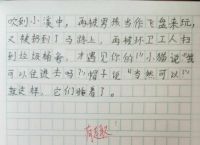 吹到小溪中，再被男孩当作飞盘来玩，
又被扔到了马路上，再被环卫工人扫
到垃圾桶旁，才遇见你的！”小猫说“我
可以住进去吗？”帽子说“当然可以！”
就这样，它们睡着了。